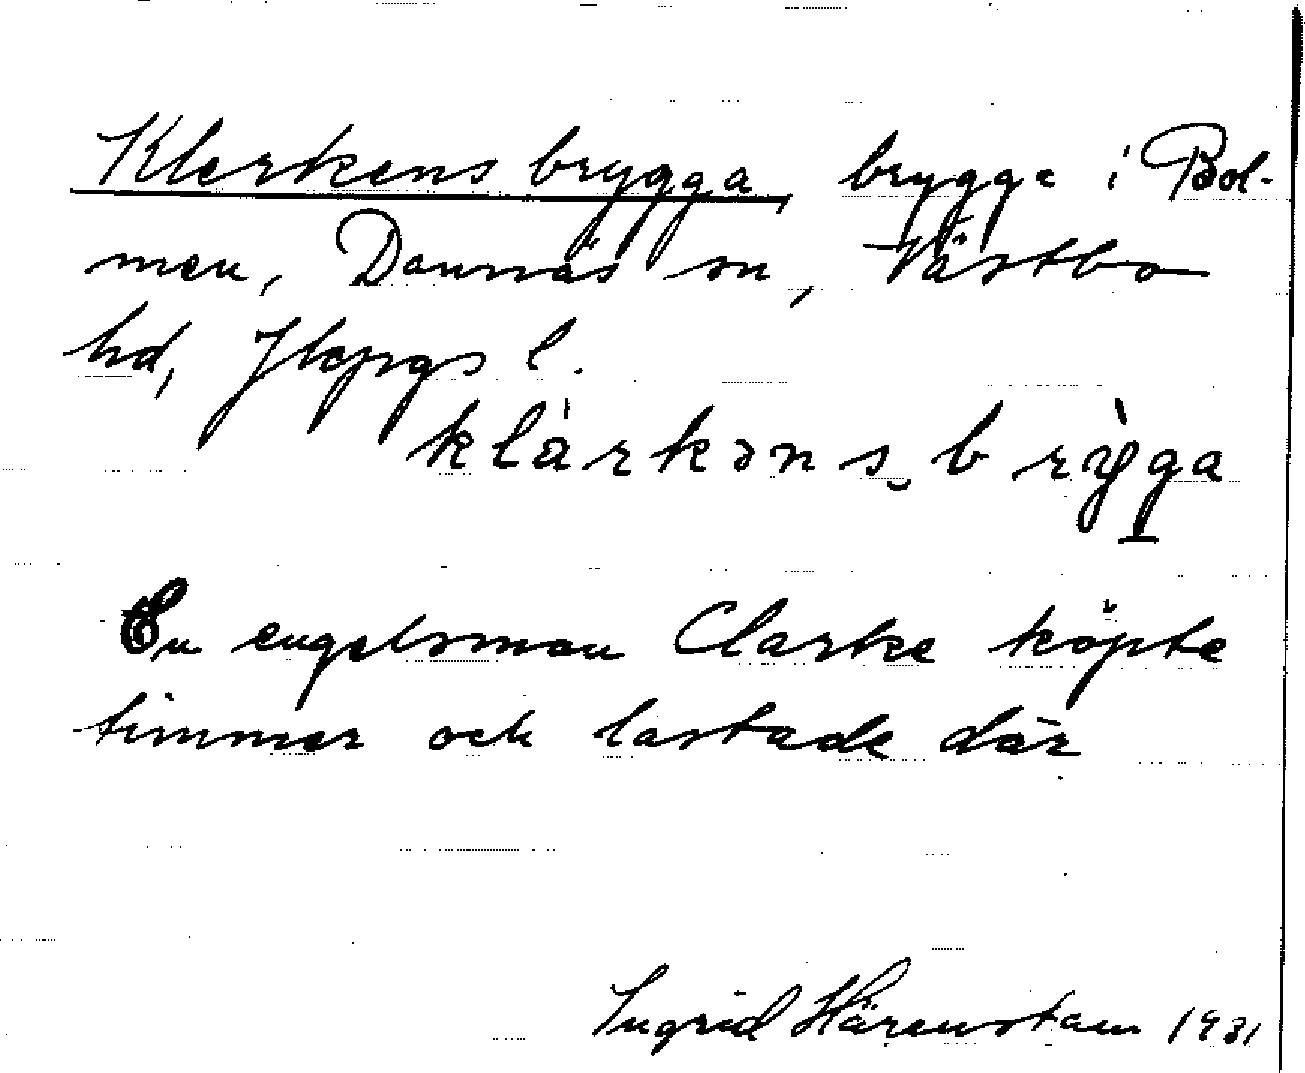 Klerkens brygga, brygga i Bol-
men, Dannäs sn, Västbo
hd, Jkpgs l.
klärkəns brỳga
En engelsman Clarke köpte
timmer och lastade där
Ingrid Härenstam 1931